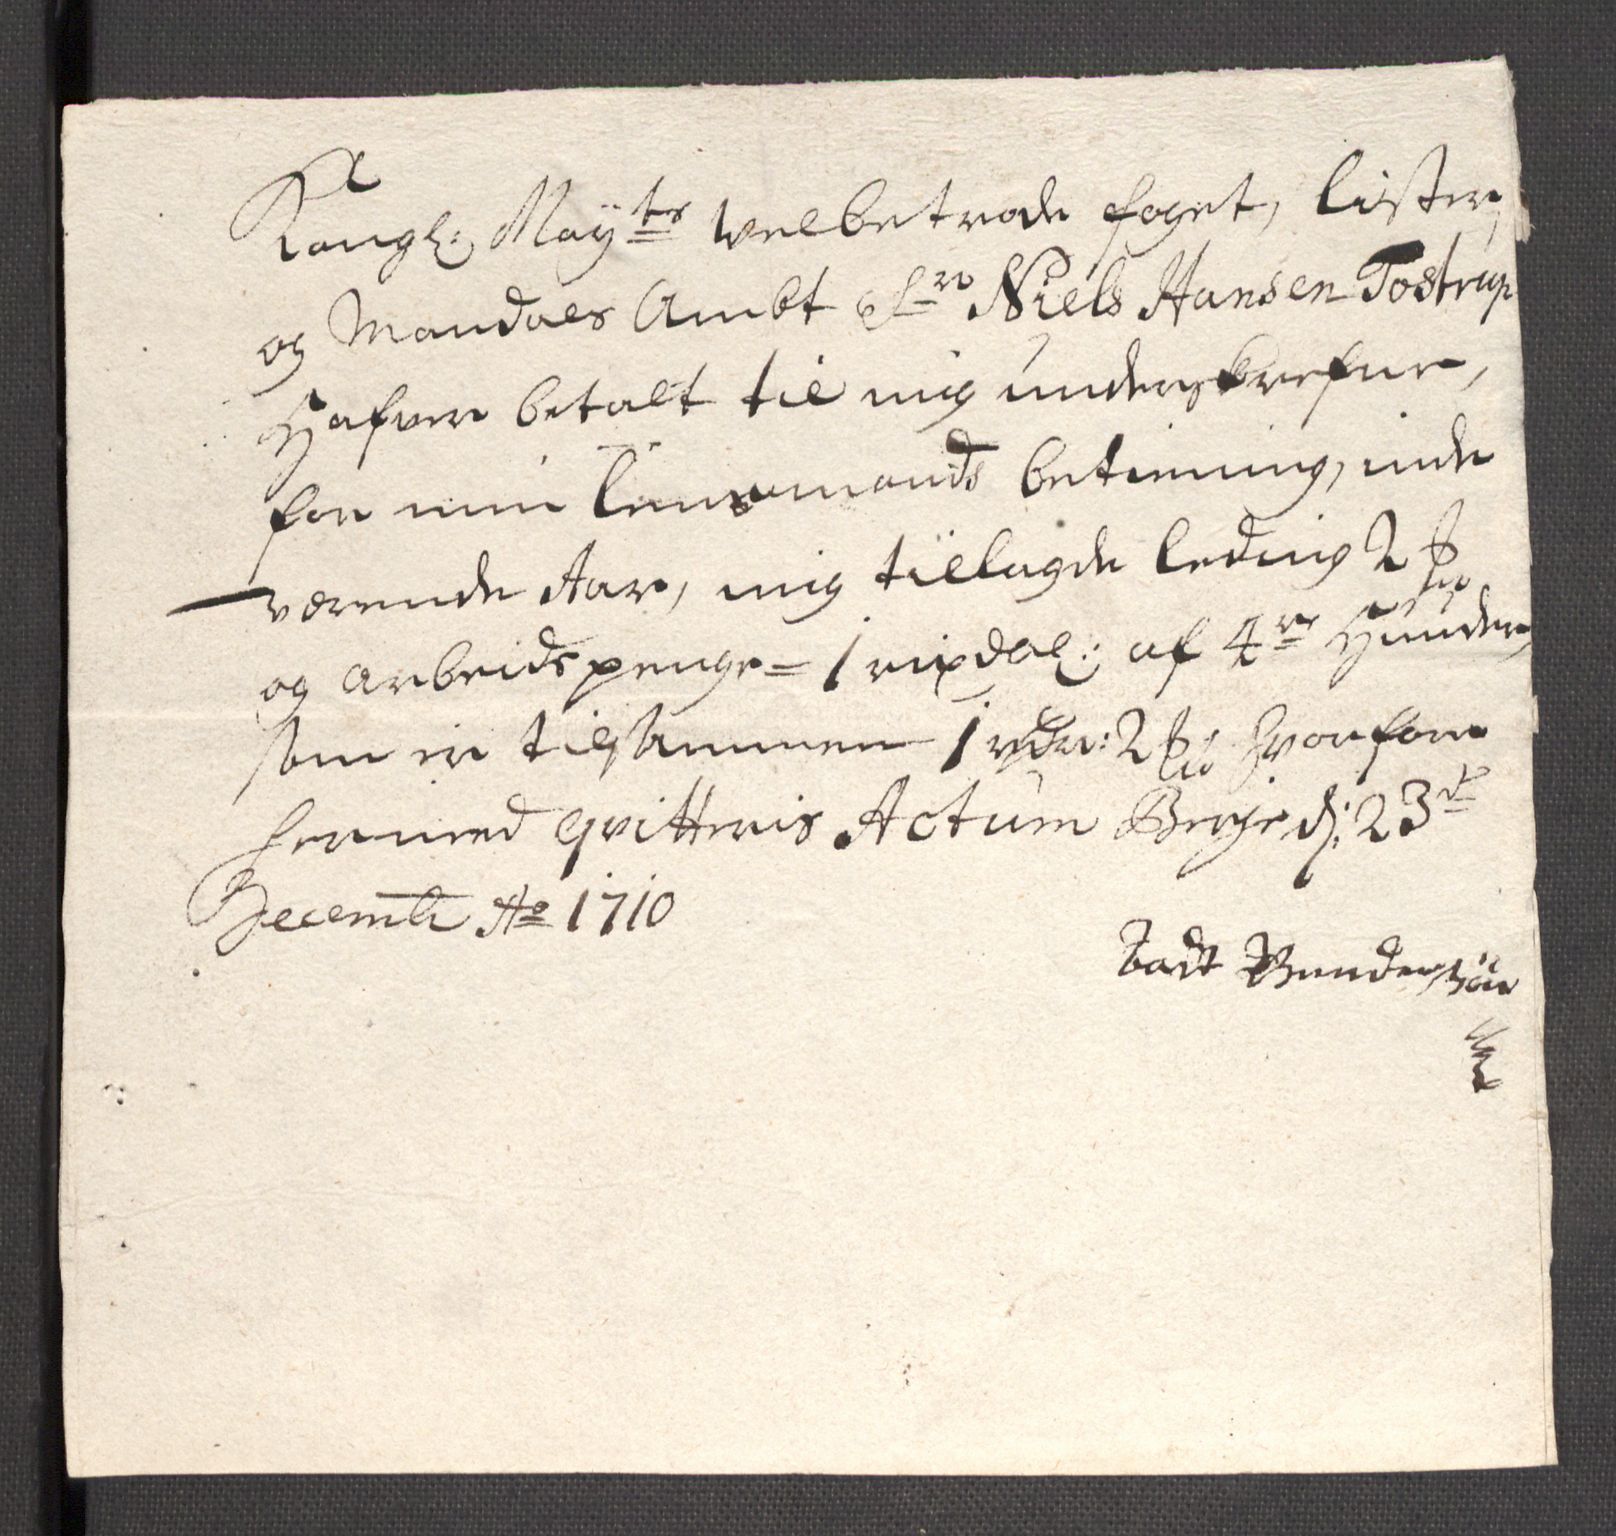 Kongl: Maÿts velbetrode foget, lister,
og Mandals Ambt Sr Niels Hansen Tostrup
Hafver betalt til mig underskrefne,
for min lensmands betiening, inde
værende Aar, mig tillagde leding 2
og arbeids penge = 1 rixdal: af 4re Hunder
som er tilsammen 1 rdr: 2 hvorfore
hermed qvitteris Actum Berge d: 23de
Decembr Ao 1710